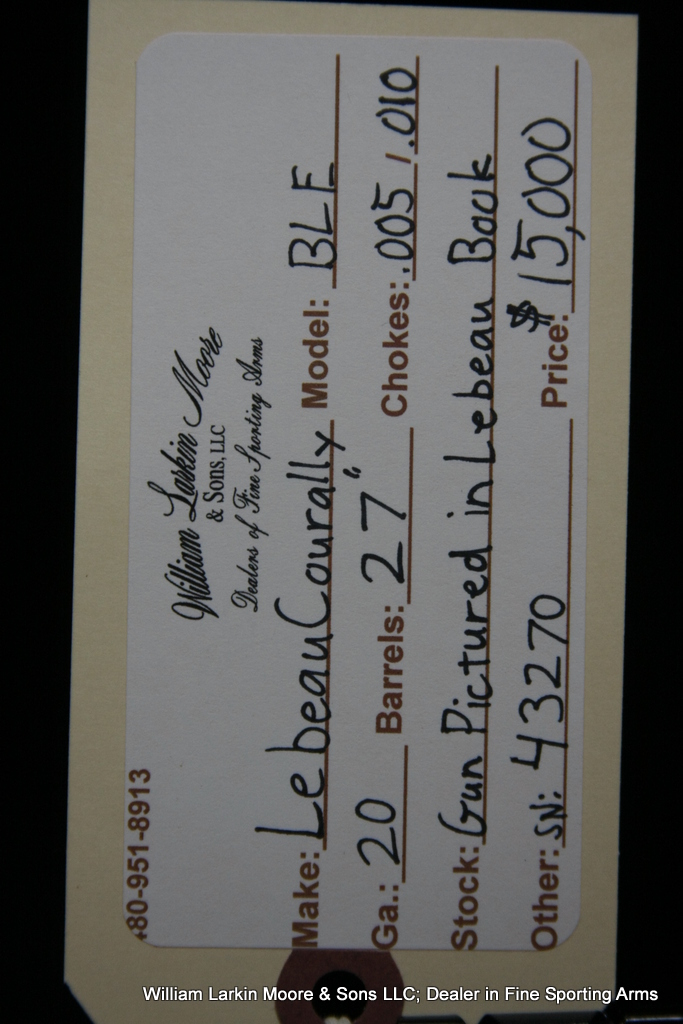 480-951-8913
William Larkin Moore
& SONS, LLC
Dealers of Fine Sporting Arms
Make: Lebeau Courally Model: BLE
Ga.: 20 Barrels: 27" Chokes: .005 / .010
Stock: Gun Pictured in Lebeau Book
Other: SN: 43270 Price: $15,000
William Larkin Moore & Sons LLC; Dealer in Fine Sporting Arms